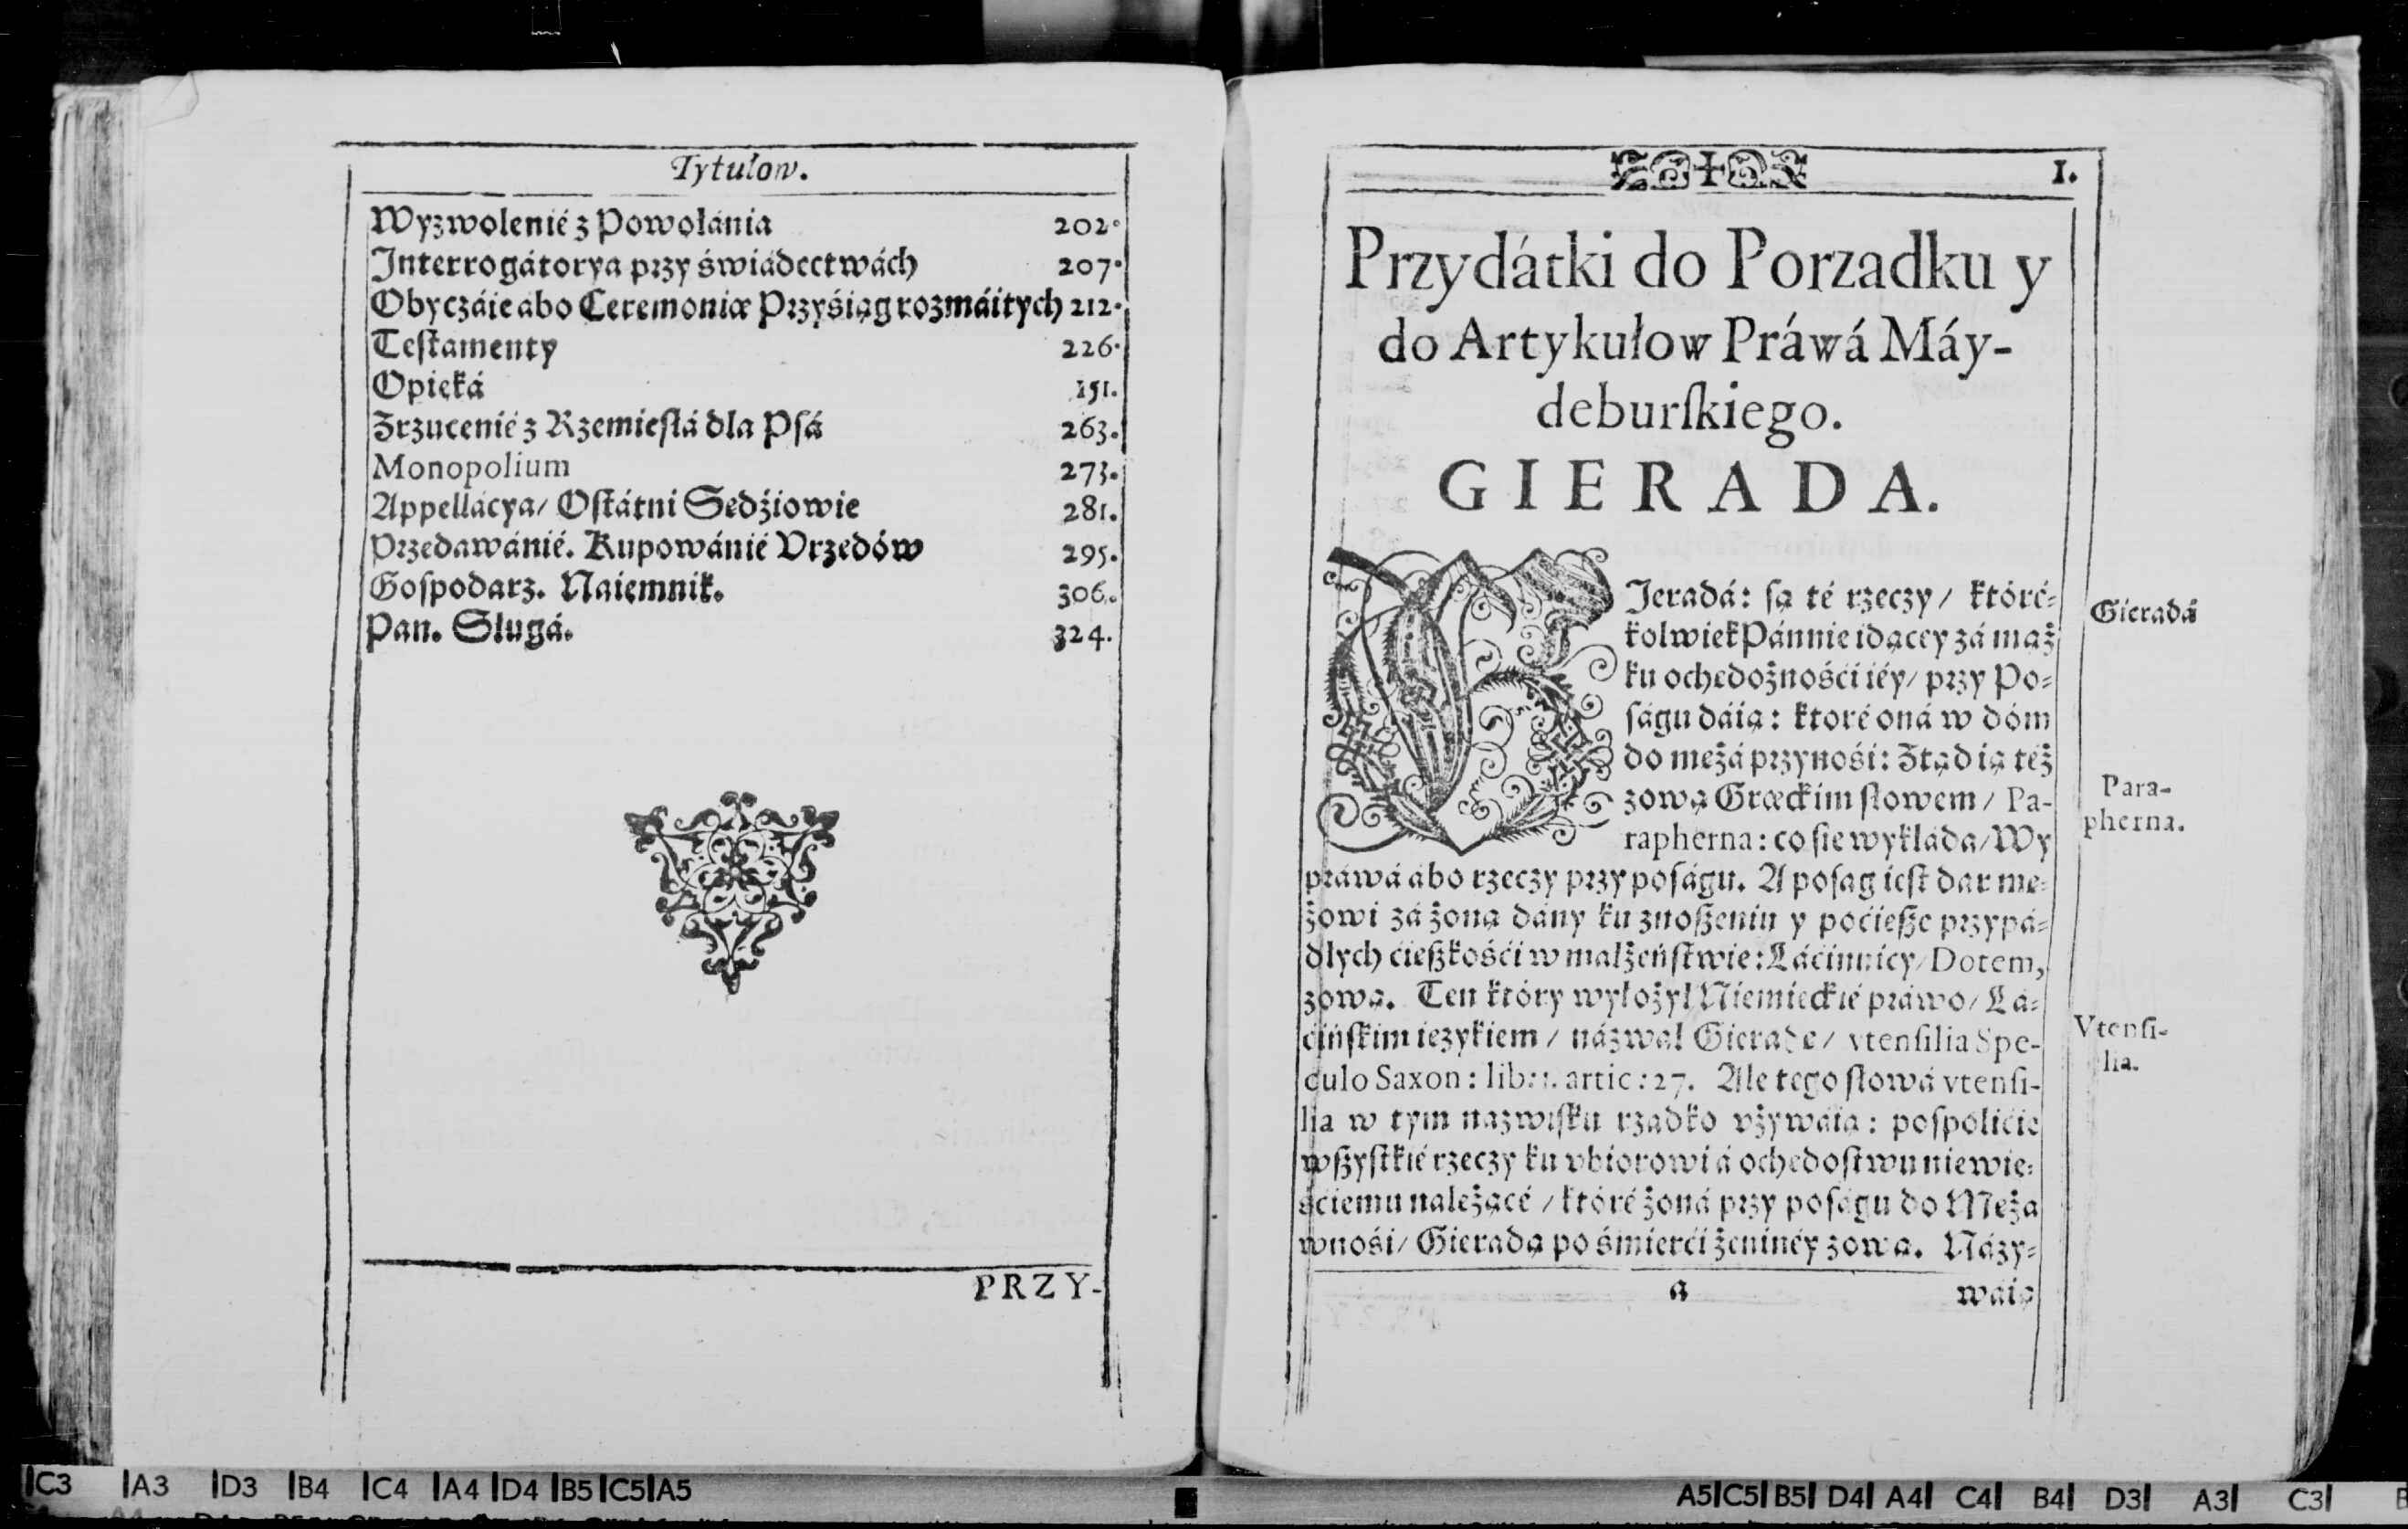 Tytułow.
Wyzwolenié z Powołánia 202.
Interrogátorya przy świádectwách 207.
Obyczáie ábo Ceremoniæ Przyśiąg rozmáitych 212.
Teſtamenty 226.
Opieká 151.
Zrzucenié z Rzemieſłá dla Pſá 263.
Monopolium 273.
Appellácya/ Oſtátni Sedźiowie 281.
Przedawánié. Kupowánié Vrzedów 295.
Goſpodarz. Naiemnik. 306.
Pan. Sługá. 324.
PRZY-
1.
Przydátki do Porzadku y
do Artykułow Práwá Máy-
deburſkiego.
GIERADA.
GJeradá: ſą té rzeczy/ któré-
kolwiek Pánnie idącey zá mąż
ku ochedożnośći iéy/ przy Po-
ſágu dáią: ktoré oná w dóm
do mężá przynośi: Ztąd ią też
zową Græckim ſłowem/ Pa-
rapherna: co ſie wykłada/ Wy
práwá ábo rzeczy przy poſágu. A poſag ieſt dar mę-
żowi zá żoną dány ku znoßeniu y poćieße przypá-
dłych ćießkośći w małżeńſtwie: Láćinnicy/ Dotem,
zową. Ten który wyłożył Niemieckié práwo/ Lá-
ćińſkim iezykiem/ názwał Gierade/ vtenſilia Spe-
culo Saxon: lib: 1. artic: 27. Ale tego ſłowá vtenſi-
lia w tym nazwiſku rządko vżywáią: poſpolićie
wßyſtkié rzeczy ku vbiorowi á ochedoſtwu niewie-
śćiemu należącé/ któré żoná przy poſágu do Mężá
wnośi/ Gieradą po śmierći żeninéy zową. Názy-
a
waią
Gieradá
Para-
pherna.
Vtenſi-
lia.
C3 A3 D3 B4 C4 A4 D4 B5 C5 A5
A5 C5 B5 D4 A4 C4 B4 D3 A3 C3